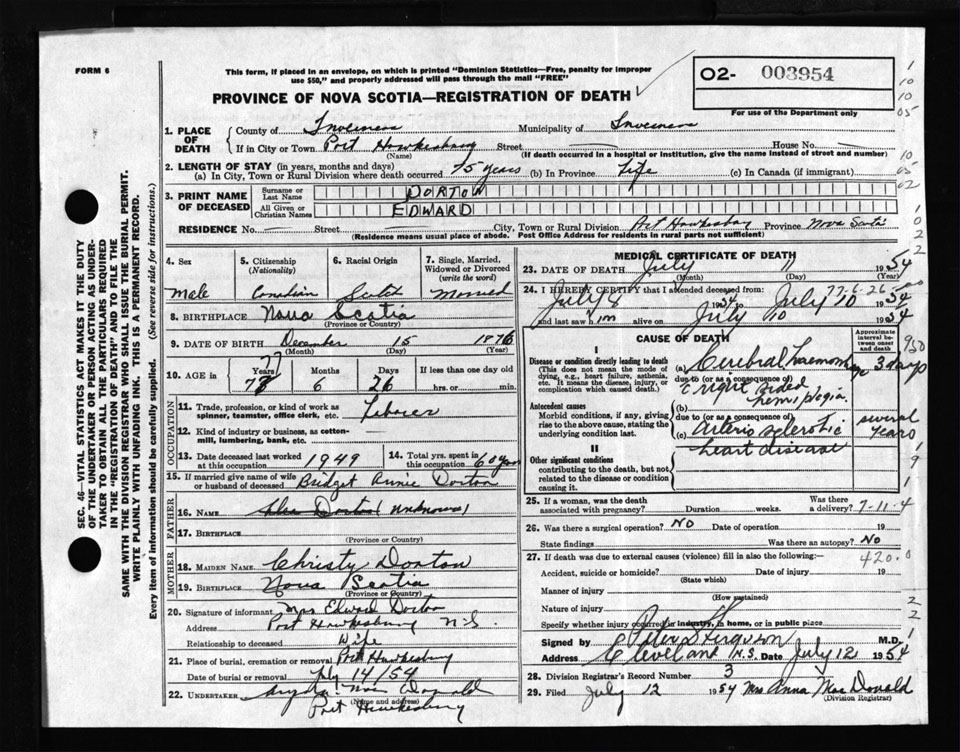 FORM 6
This form, if placed in an envelope, on which is printed "Dominion Statistics—Free, penalty for improper
use $50," and properly addressed will pass through the mail "FREE"
02- 003954
PROVINCE OF NOVA SCOTIA—REGISTRATION OF DEATH
For use of the Department only
1. PLACE OF DEATH County of Inverness Municipality of Inverness
If in City or Town Port Hawkesbury Street House No.
(Name) (If death occurred in a hospital or institution, give the name instead of street and number)
2. LENGTH OF STAY (in years, months and days)
(a) In City, Town or Rural Division where death occurred 75 years (b) In Province Life (c) In Canada (if immigrant)
3. PRINT NAME OF DECEASED Surname or Last Name DORTON
All Given or Christian Names EDWARD
RESIDENCE No. Street City, Town or Rural Division Port Hawkesbury Province Nova Scotia
(Residence means usual place of abode. Post Office Address for residents in rural parts not sufficient)
4. Sex 5. Citizenship (Nationality) 6. Racial Origin 7. Single, Married, Widowed or Divorced (write the word)
Male Canadian Scotch Married
8. BIRTHPLACE Nova Scotia
(Province or Country)
9. DATE OF BIRTH December 15 1876
(Month) (Day) (Year)
10. AGE Years Months Days If less than one day old
77
78 6 26 hrs. or min.
OCCUPATION
11. Trade, profession, or kind of work as spinner, teamster, office clerk, etc. Laborer
12. Kind of industry or business, as cotton-mill, lumbering, bank, etc.
13. Date deceased last worked at this occupation 1949 14. Total yrs. spent in this occupation 60 years
15. If married give name of wife or husband of deceased Bridget Annie Dorton
FATHER
16. NAME Dorton (unknown)
17. BIRTHPLACE
(Province or Country)
MOTHER
18. MAIDEN NAME Christy Dorton
19. BIRTHPLACE Nova Scotia
(Province or Country)
20. Signature of informant Mrs Edward Dorton
Address Port Hawkesbury N.S.
Relationship to deceased Wife
21. Place of burial, cremation or removal Port Hawkesbury
Date of burial or removal July 14/54
22. UNDERTAKER
(Name and address)
Port Hawkesbury
MEDICAL CERTIFICATE OF DEATH
23. DATE OF DEATH July 11 1954
(Month) (Day) (Year)
77-6-26
24. I HEREBY CERTIFY that I attended deceased from:
July 8 1954 to July 10 1954
and last saw him alive on July 10 1954
CAUSE OF DEATH
Approximate interval between onset and death
I
Disease or condition directly leading to death
(This does not mean the mode of dying, e.g., heart failure, asthenia, etc. It means the disease, injury, or complication which caused death.)
(a) Cerebral haemorrhage 3 days
due to (or as a consequence of)
right sided
hemiplegia.
Antecedent causes
Morbid conditions, if any, giving rise to the above cause, stating the underlying condition last.
(b)
due to (or as a consequence of)
(c) Arterio sclerotic several years
heart disease
II
Other significant conditions
contributing to the death, but not related to the disease or condition causing it.
25. If a woman, was the death associated with pregnancy? Duration weeks. Was there a delivery? 7-11-4
26. Was there a surgical operation? No Date of operation 19
State findings Was there an autopsy? No
27. If death was due to external causes (violence) fill in also the following:— 420.0
Accident, suicide or homicide? Date of injury 19
(State which)
Manner of injury
(How sustained)
Nature of injury
Specify whether injury occurred in industry, in home, or in public place
Signed by Ferguson M.D.
Address Cleveland N.S. Date July 12 1954
28. Division Registrar's Record Number 3
29. Filed July 12 1954 Mrs Anna MacDonald
(Division Registrar)
SEC. 46—VITAL STATISTICS ACT MAKES IT THE DUTY
OF THE UNDERTAKER OR PERSON ACTING AS UNDER-
TAKER TO OBTAIN ALL THE PARTICULARS REQUIRED
IN THE "REGISTRATION OF DEATH" AND TO FILE THE
SAME WITH THE DIVISION REGISTRAR WHO SHALL ISSUE THE BURIAL PERMIT.
WRITE PLAINLY WITH UNFADING INK. THIS IS A PERMANENT RECORD.
Every item of information should be carefully supplied. (See reverse side for instructions.)